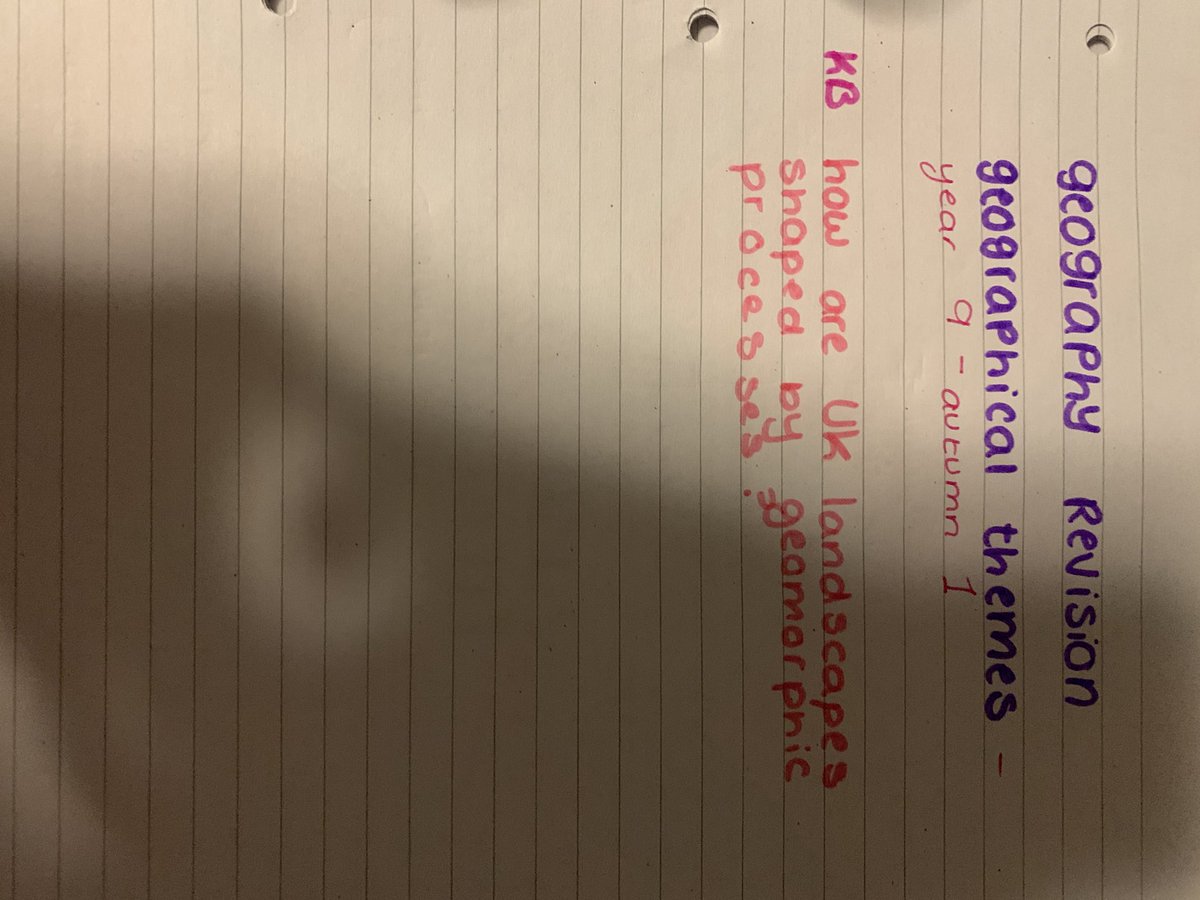 geography Revision
geographical themes -
year 9 - autumn 1
KB how are UK landscapes
shaped by geomorphic
processes.